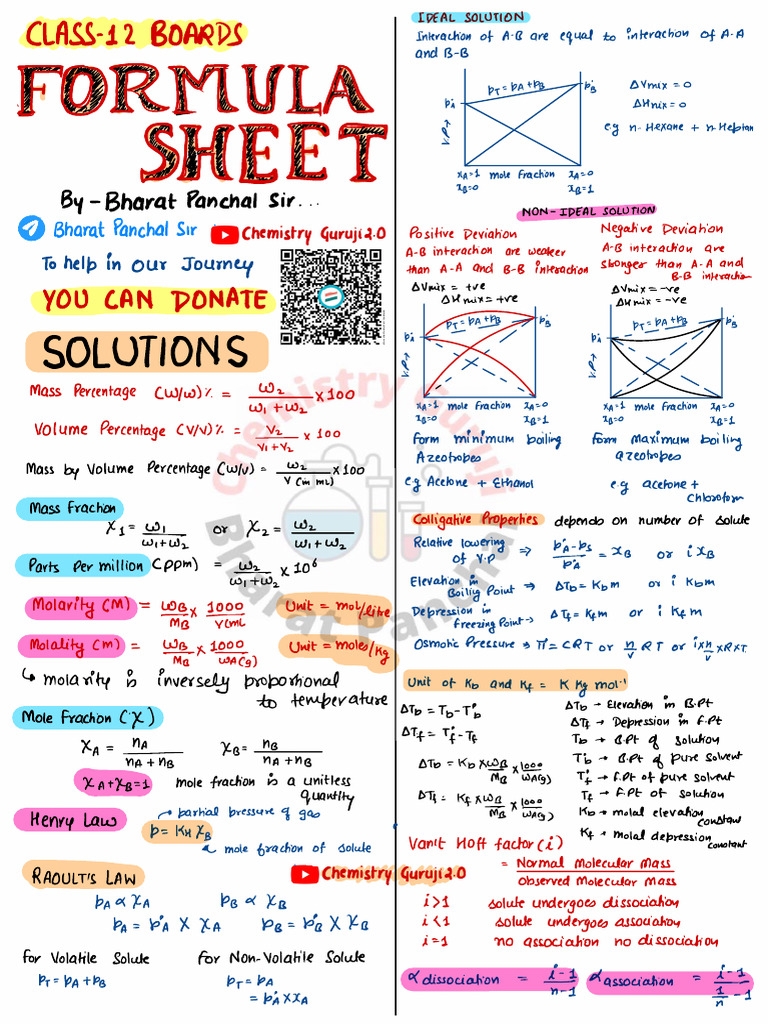 CLASS-12 BOARDS
FORMULA
SHEET
By - Bharat Panchal Sir...
Bharat Panchal Sir
Chemistry Guruji 2.0
To help in our Journey
YOU CAN DONATE
SOLUTIONS
Mass Percentage (W/W)% = ω₂ / (ω₁+ω₂) × 100
Volume Percentage (V/V)% = V₂ / (V₁+V₂) × 100
Mass by Volume Percentage (W/V) = ω₂ / V (in mL) × 100
Mass Fraction
χ₁ = ω₁ / (ω₁+ω₂) or χ₂ = ω₂ / (ω₁+ω₂)
Parts Per million (ppm) = ω₂ / (ω₁+ω₂) × 10⁶
Molarity (M) = ωB/MB × 1000/V(mL Unit = mol/litre
Molality (m) = ωB/MB × 1000/ωA(g) Unit = moles/kg
↳ molarity is inversely proportional
to temperature
Mole Fraction (χ)
χA = nA / (nA + nB) χB = nB / (nA + nB)
χA+χB=1 mole fraction is a unitless
quantity
Henry Law
partial pressure of gas
p = KH χB
mole fraction of solute
RAOULT'S LAW
Chemistry Guruji 2.0
pA ∝ χA pB ∝ χB
pA = p°A × χA pB = p°B × χB
For Volatile Solute For Non-Volatile Solute
pT = pA + pB pT = pA
= p°A × χA
IDEAL SOLUTION
Interaction of A-B are equal to interaction of A-A
and B-B
pT = pA + pB
p°A
p°B
V.P→
χA=1 mole fraction χA=0
χB=0 χB=1
ΔVmix = 0
ΔHmix = 0
e.g n-Hexane + n-Heptan
NON-IDEAL SOLUTION
Positive Deviation
A-B interaction are weaker
than A-A and B-B interaction
ΔVmix = +ve
ΔHmix = +ve
pT = pA + pB
p°A
p°B
V.P→
χA=1 mole fraction χA=0
χB=0 χB=1
Form minimum boiling
Azeotropes
e.g Acetone + Ethanol
Negative Deviation
A-B interaction are
stronger than A-A and
B-B interaction
ΔVmix = -ve
ΔHmix = -ve
pT = pA + pB
p°A
p°B
V.P→
χA=1 mole fraction χA=0
χB=0 χB=1
Form maximum boiling
azeotropes
e.g acetone +
Chloroform
Colligative Properties depends on number of solute
Relative lowering
of V.P ⇒ (p°A - ps) / p°A = χB or i χB
Elevation in
Boiling Point → ΔTb = Kb m or i Kb m
Depression in
freezing Point → ΔTf = Kf m or i Kf m
Osmotic Pressure ⇒ π = CRT or n/V RT or i×n/V ×R×T
Unit of Kb and Kf = K Kg mol⁻¹
ΔTb = Tb - T°b
ΔTf = T°f - Tf
ΔTb = Kb × ωB/MB × 1000/ωA(g)
ΔTf = Kf × ωB/MB × 1000/ωA(g)
ΔTb → Elevation in B.Pt
ΔTf → Depression in F.Pt
Tb → B.Pt of solution
T°b → B.Pt of pure solvent
T°f → F.Pt of pure solvent
Tf → F.Pt of solution
Kb → molal elevation constant
Kf → molal depression constant
Vanit Hoff factor (i)
= Normal Molecular Mass / Observed Molecular Mass
i>1 solute undergoes dissociation
i<1 solute undergoes association
i=1 no association no dissociation
α dissociation = (i-1) / (n-1)
α association = (i-1) / (1/n -1)
Chemistry Guruji
Bharat Panchal